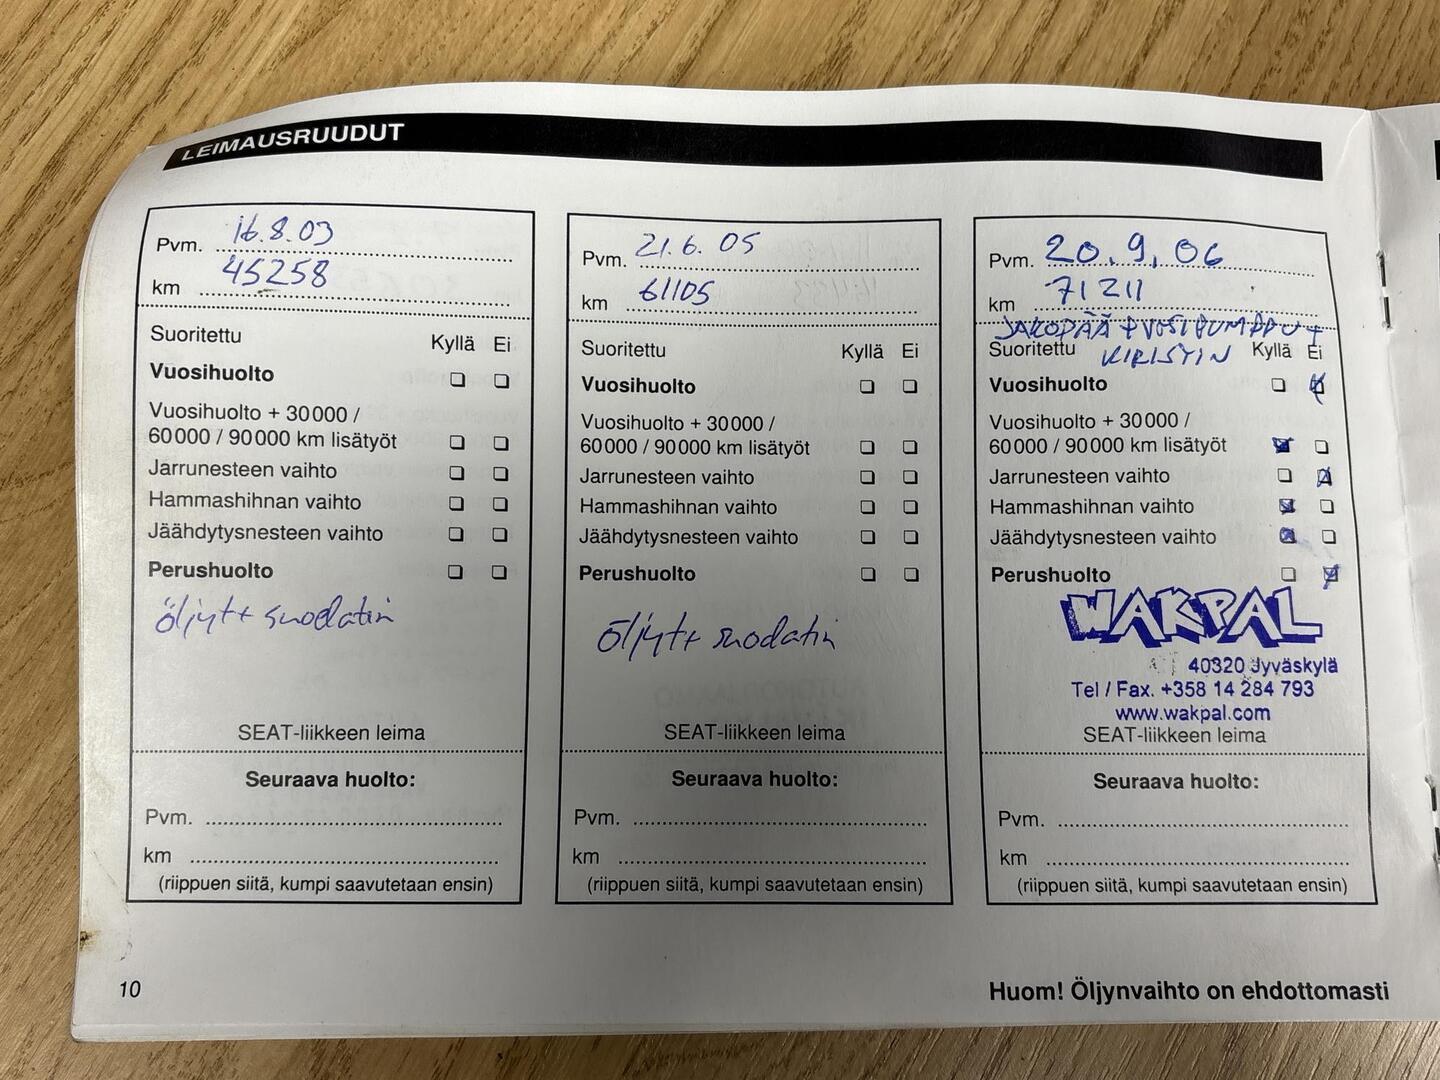 LEIMAUSRUUDUT
Pvm. 16.8.03
km 45258
Suoritettu Kyllä Ei
Vuosihuolto
Vuosihuolto + 30 000 /
60 000 / 90 000 km lisätyöt
Jarrunesteen vaihto
Hammashihnan vaihto
Jäähdytysnesteen vaihto
Perushuolto
öljyt + suodatin
SEAT-liikkeen leima
Seuraava huolto:
Pvm.
km
(riippuen siitä, kumpi saavutetaan ensin)
Pvm. 21.6.05
km 61105
Suoritettu Kyllä Ei
Vuosihuolto
Vuosihuolto + 30 000 /
60 000 / 90 000 km lisätyöt
Jarrunesteen vaihto
Hammashihnan vaihto
Jäähdytysnesteen vaihto
Perushuolto
öljyt + suodatin
SEAT-liikkeen leima
Seuraava huolto:
Pvm.
km
(riippuen siitä, kumpi saavutetaan ensin)
Pvm. 20.9.06
km 71211
JAKOPÄÄ + VESIPUMPPU +
KIRISTIN
Suoritettu Kyllä Ei
Vuosihuolto
Vuosihuolto + 30 000 /
60 000 / 90 000 km lisätyöt
Jarrunesteen vaihto
Hammashihnan vaihto
Jäähdytysnesteen vaihto
Perushuolto
WAKPAL
40320 Jyväskylä
Tel / Fax. +358 14 284 793
www.wakpal.com
SEAT-liikkeen leima
Seuraava huolto:
Pvm.
km
(riippuen siitä, kumpi saavutetaan ensin)
10
Huom! Öljynvaihto on ehdottomasti